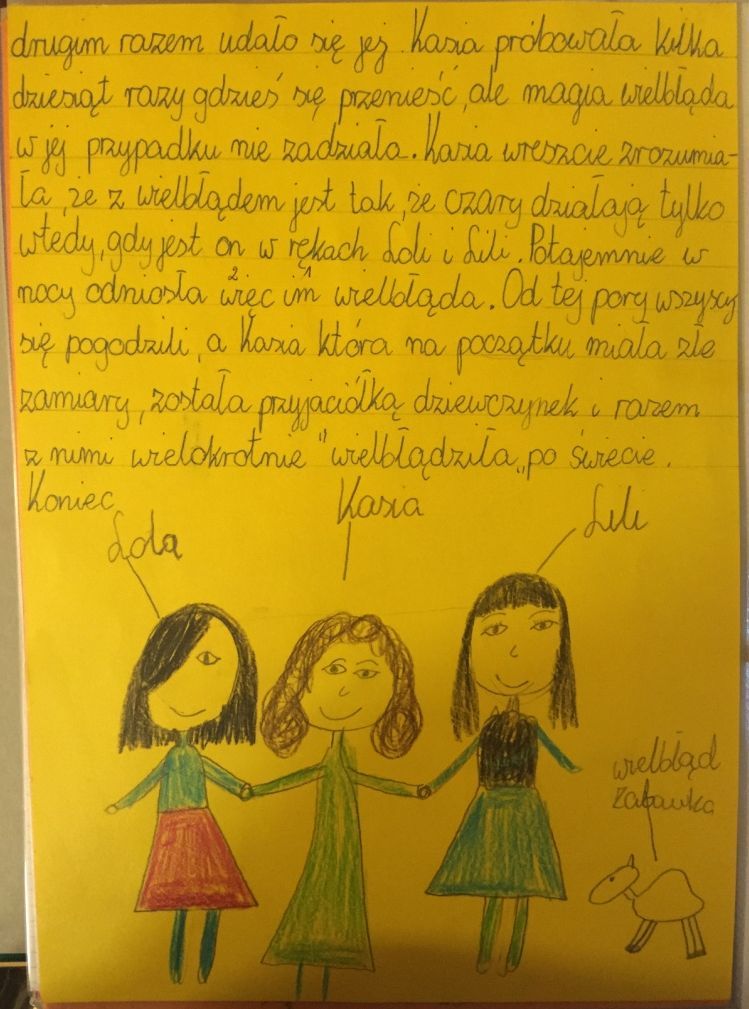 drugim razem udało się jej. Kasia próbowała kilka
dziesiąt razy gdzieś się przenieść, ale magia wielbłąda
w jej przypadku nie zadziała. Kasia wreszcie zrozumia-
ła, że z wielbłądem jest tak, że czary działają tylko
wtedy, gdy jest on w rękach Loli i Lili. Potajemnie w
nocy odniosła 2więc im1 wielbłąda. Od tej pory wszyscy
się pogodzili, a Kasia która na początku miała złe
zamiary, została przyjaciółką dziewczynek i razem
z nimi wielokrotnie "wielbłądziła„ po świecie.
Koniec
Lola
Kasia
Lili
wielbłąd
zabawka